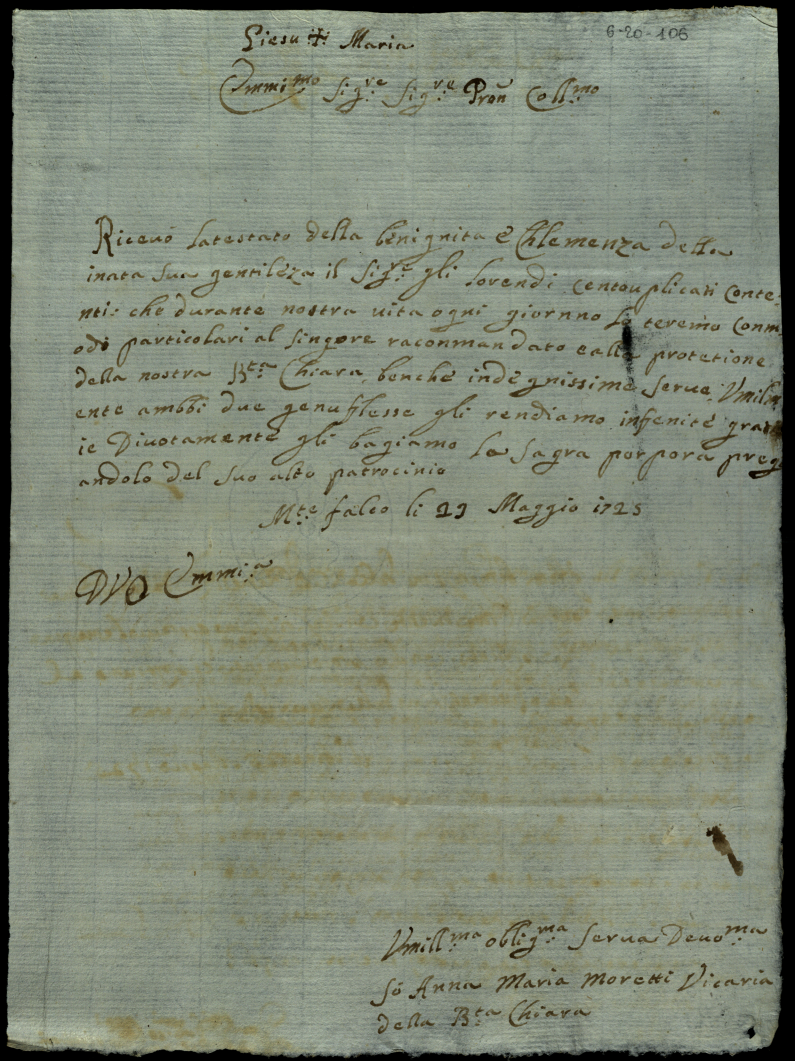 6-20-106
Giesu ☩ Maria
Emmi:mo Sigre: Sigre: Pron Coll:mo
Riceuo latestato della benignita e Chlemenza della
inata sua gentileza il Sigre: gli lorendi centouplicati conte-
nti: che durante nostra uita ogni giornno lo teremo conm-
odi particolari al singore raconmandato e alla protetione
della nostra Bta: Chiara, benche indegnissime serue, Vmilm
ente ambbi due genufflesse gli rendiamo infenite grat
ie Diuotamente gli bagiamo la sagra porpora preg
andolo del suo alto patrocinio
Mte: falco li 23 Maggio 1725
DVO Emmi:a
Vmill:ma oblig:ma Serua Deuo:ma
So Anna Maria Moretti Vicaria
della Bta: Chiara